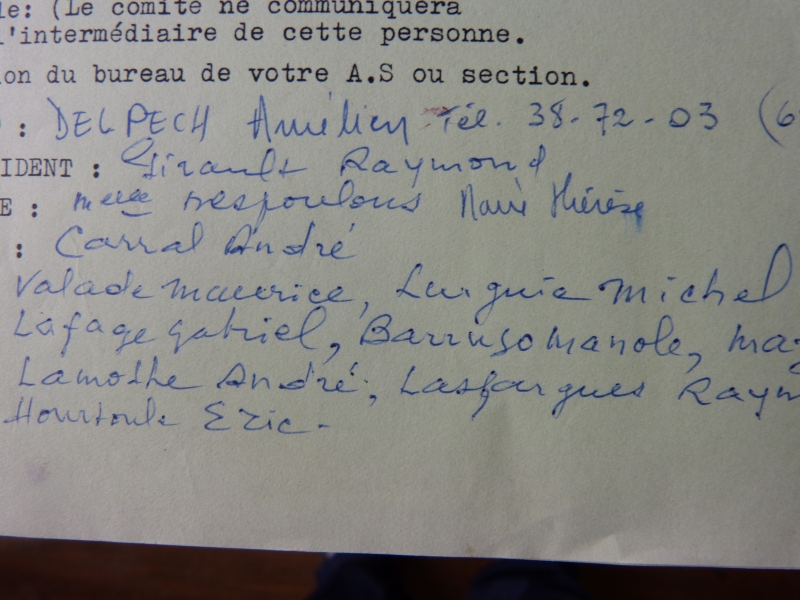 le: (Le comité ne communiquera
l'intermédiaire de cette personne.
ion du bureau de votre A.S ou section.
: DELPECH Amélien Tél. 38-72-03 (6
IDENT : Girault Raymond
E : Mespoulous Marie Thérèse
: Carral André
Valade Maurice, Lurguie Michel
Lafage Gabriel, Manole, Ma
Lamothe André, Lasfargues Raym
Hourtoule Eric.